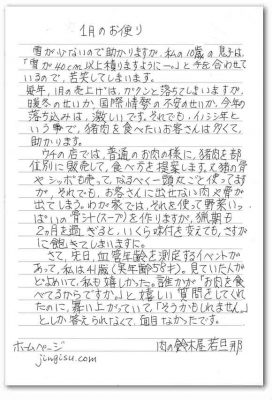 1月のお便り
雪が少ないので助かりますが、私の10歳の息子は、
「雪が40cm以上積りますように…。」と手を合わせて
いるので、苦笑してしまいます。
毎年、1月の売上げは、ガクンと落ちてしまいますが、
暖冬のせいか、国際情勢の不安のせいか、今年の
落ち込みは、激しいです。それでも、イノシシ年と
いう事で、猪肉を食べたいお客さんは多くて、
助かります。
ウチの店では、普通のお肉の様に、猪肉を部
位別に販売して、食べ方を提案します。又、猪の骨
やシッポも売って、なるべく一頭丸ごと使ってます
が、それでも、お客さんに出せない肉や骨が
出てしまう。わが家では、それを使って野菜いっ
ぱいの骨汁(スープ)を作りますが、猟期も
2ヶ月を過ぎると、いくら味付を変えても、さすが
に飽きてしまいますに。
さて、先日、血管年齢を測定するイベントが
あって、私は41歳(実年齢58才)。見ていた人が
どよめいて、私も嬉しかった。誰かが「お肉を食
べてるからですか。」と嬉しい質問をしてくれ
たのに、舞い上がっていて、「そうかもしれません。」
としか答えられなくて、面目なかったです。
ホームページ
jingisu.com
肉の鈴木屋若旦那